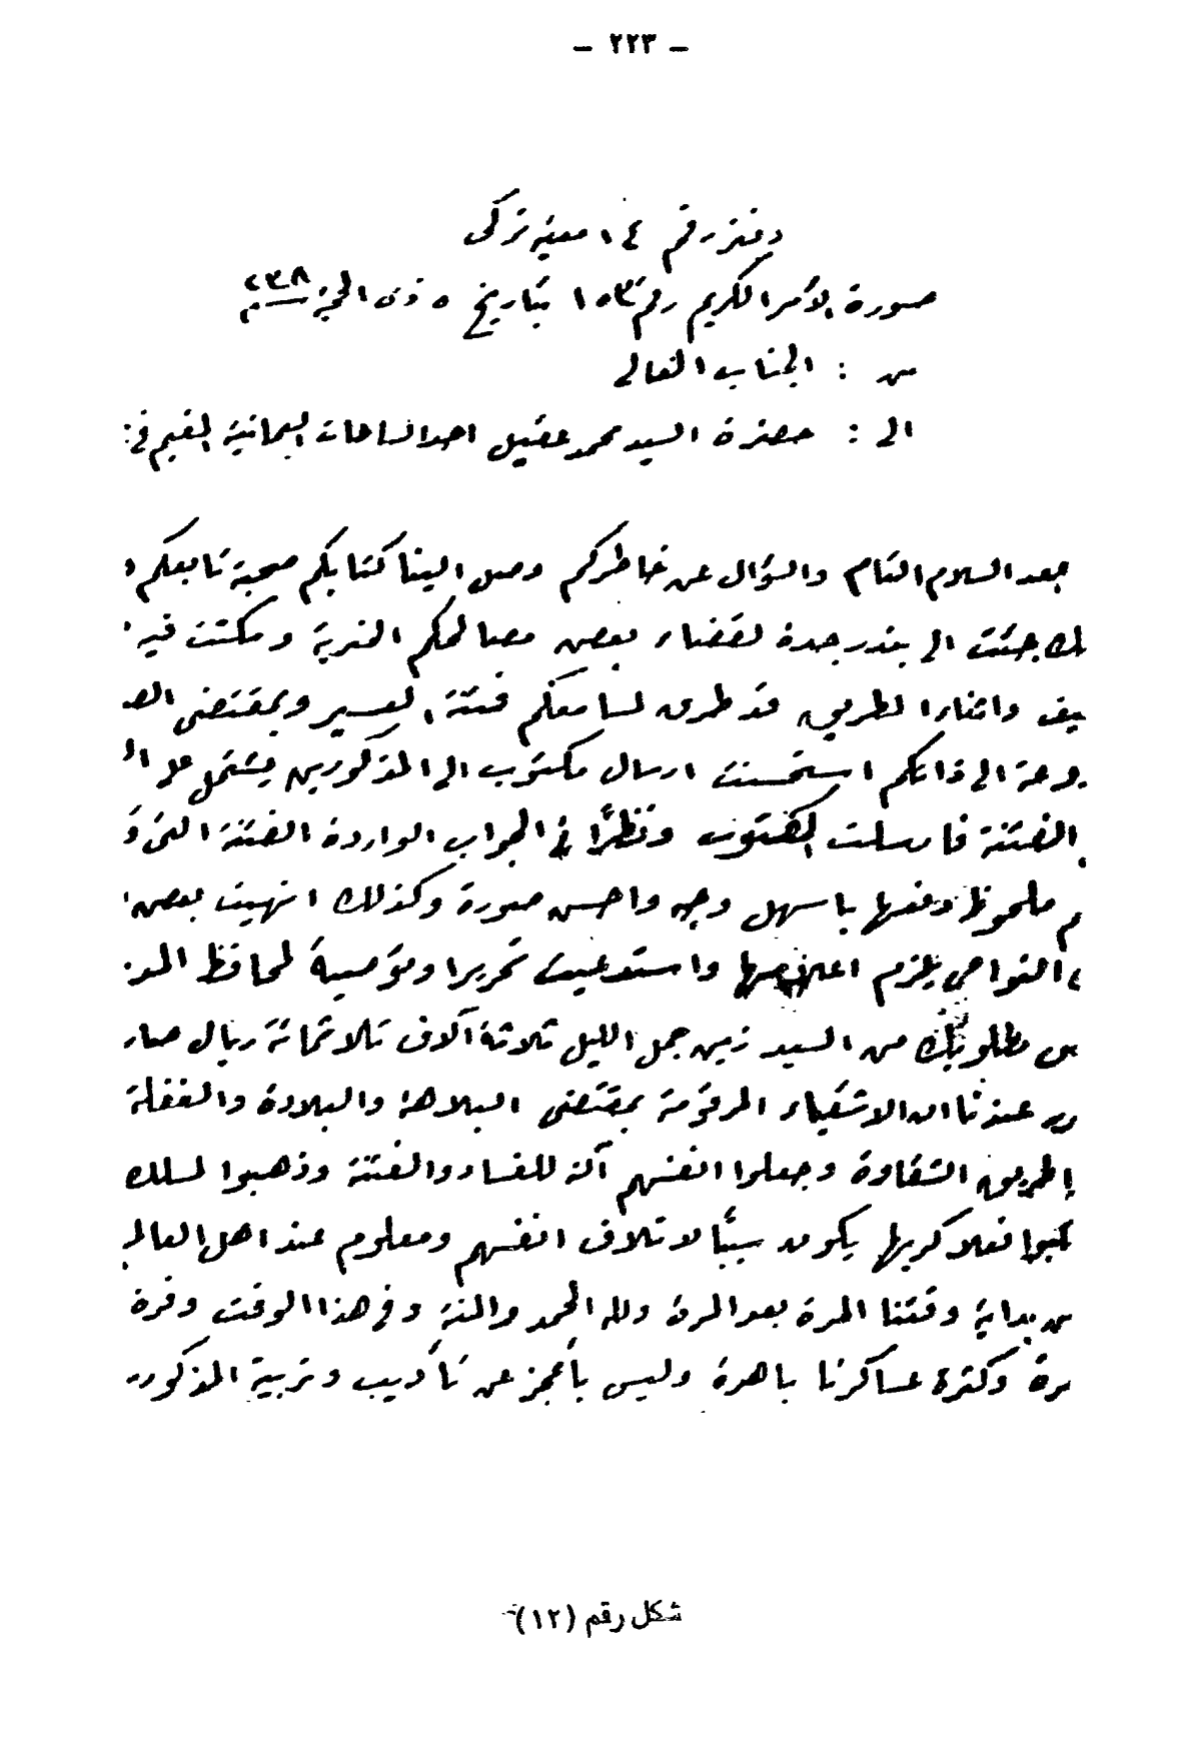 - ٢٢٣ -
دفتر رقم ١٤ معيه تركى
صورة الأمر الكريم رقم ١٥٣ بتاريخ ٥ ذى الحجة ٢٣٨
من : الجناب العالى
الى : حضرة السيد محمد عقيل احد السادات اليمانية المقيم فى:
بعد السلام التام والسؤال عن خاطركم وصل الينا كتابكم صحبة تابعكم و
جئت الى بندر جدة لقضاء بعض مصالحكم الضرية ومكثت فيه
يف واثناء الطريق قد طرق لسامعكم فتنة العسير وبمقتضى الص
الى ذاتكم استحسنت ارسال مكتوب الى المذكورين يشتمل على ال
الفتنة فارسلت المكتوب ونظرًا فى الجواب الواردة الفتنة التى و
م ملحوظ دفعها باسهل وجه واحسن صورة وكذلك انهيت بعض
النواحى يلزم اعلامها واستدعيت تحريرا وتوصية لمحافظ المد
مطلوبك من السيد زين جمل الليل ثلاثة آلاف ثلاثمائة ريال صار
عندنا ان الاشقياء المرقومة بمقتضى البلاهة والبلادة والغفلة
طريق الشقاوة وجعلوا انفسهم آلة للفساد والفتنة وذهبوا لسلك
فعلا كريها يكون سببًا لاتلاف انفسهم ومعلوم عند اهل العالم
بداية وقتنا المرة بعد المرة ولله الحمد والمنة وفى هذا الوقت وفرة
رة وكثرة عساكرنا باهرة وليس بأعجز عن تأديب وتربية المذكور
شكل رقم (١٢)